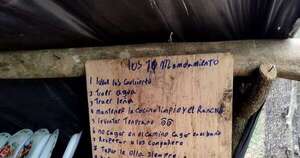 los 10 Mandamiento
1 lavar los cubierto
2 Traer agua
3 Traer leña
4 mantener la cocina limpio y el Rancho
5 levantar Temprano
6 no cagar en el camino cagar en el baño
7 Respetar a los compañero
8 Tapar la olla siempre